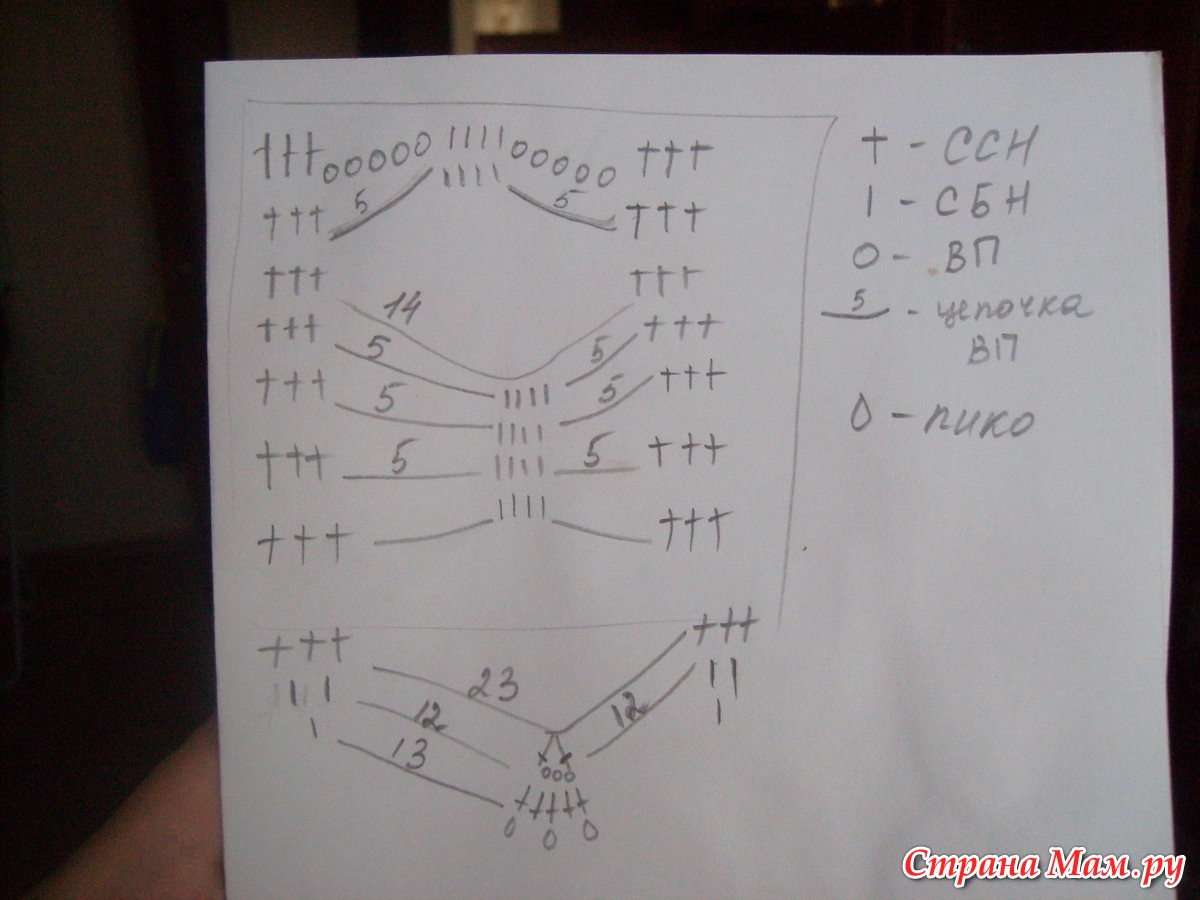 + - ССН
I - СБН
0 - ВП
5 - цепочка
ВП
0 - пико
5 5
14
5 5
5 5
5 5
23
12 12
13
Страна Мам.ру